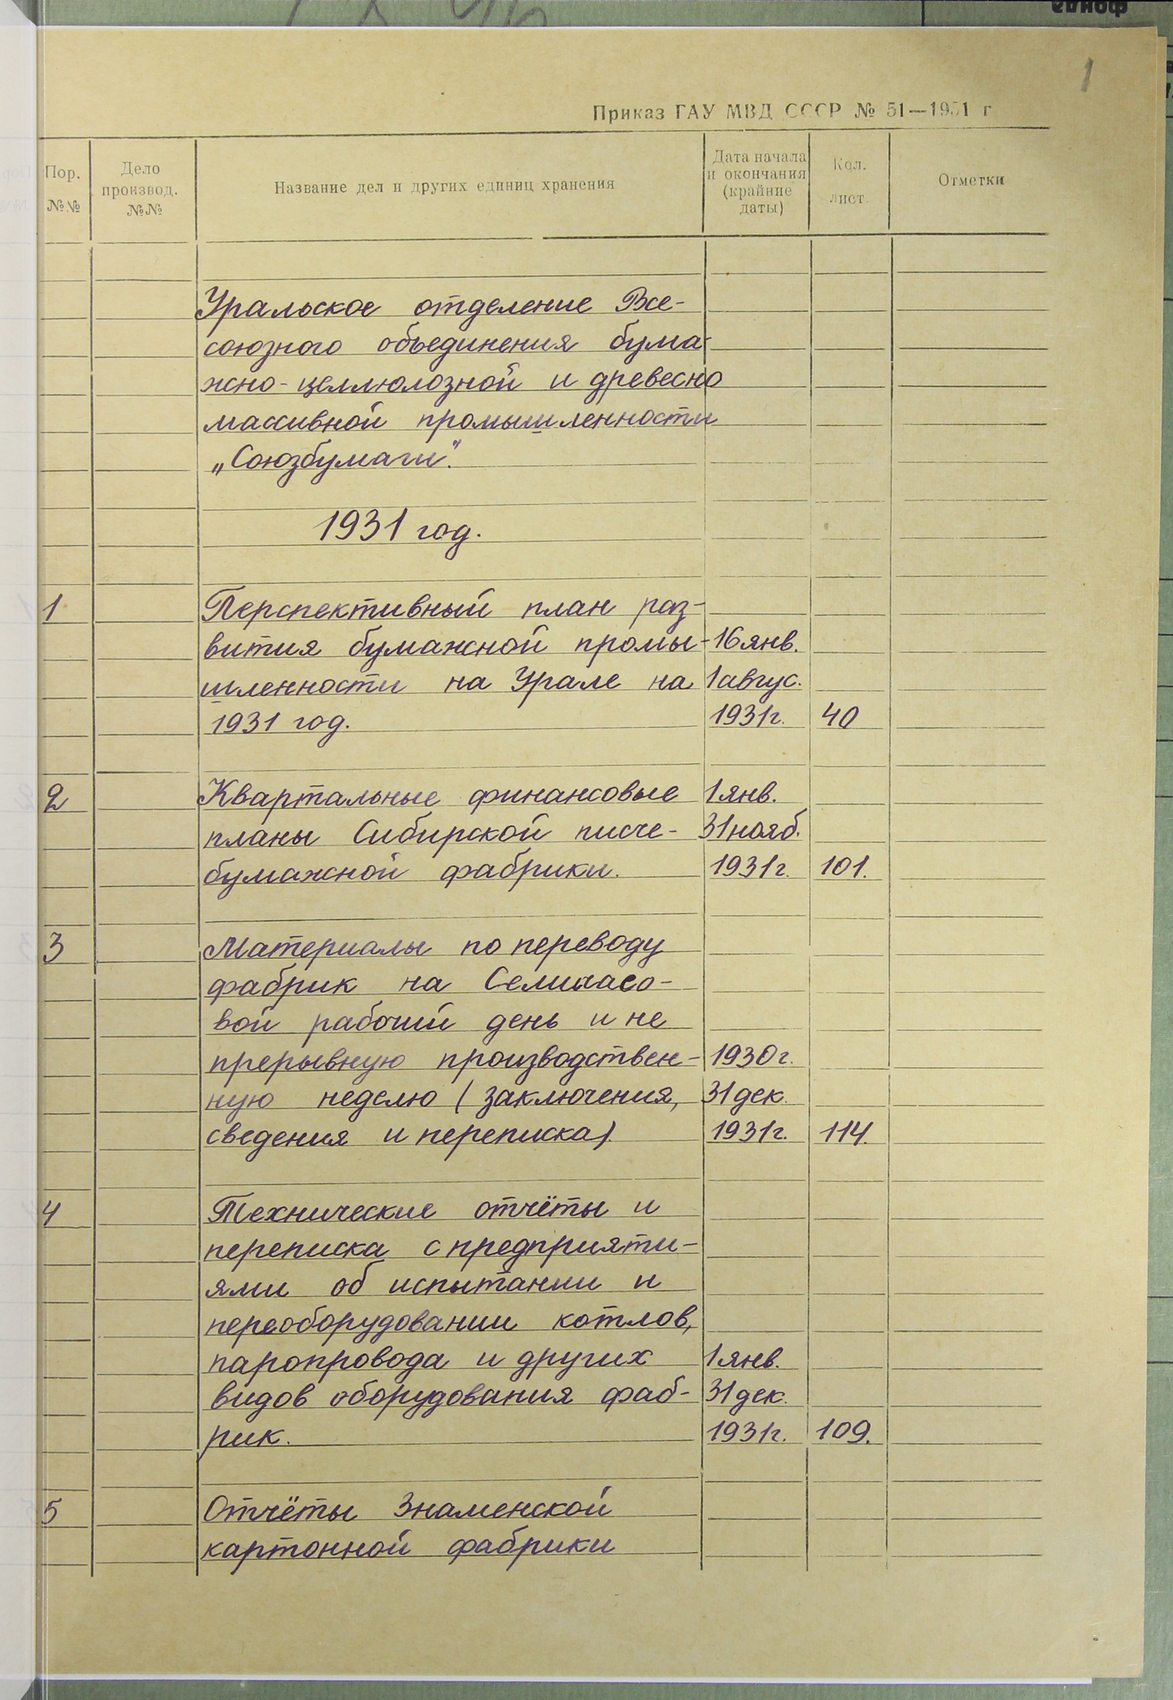 1
Приказ ГАУ МВД СССР № 51—1951 г
Пор. №№
Дело производ. №№
Название дел и других единиц хранения
Дата начала и окончания (крайние даты)
Кол. лист.
Отметки
Уральское отделение Все-
союзного объединения бума-
жно-целлюлозной и древесно
массивной промышленности
„Союзбумаги".
1931 год.
1 Перспективный план раз-
вития бумажной промы- 16 янв.
шленности на Урале на 1 авгус.
1931 год. 1931г. 40
2 Квартальные финансовые 1 янв.
планы Сибирской писче- 31 нояб.
бумажной фабрики. 1931г. 101.
3 Материалы по переводу
фабрик на Семичасо-
вой рабочий день и не
прерывную производствен- 1930г.
ную неделю (заключения, 31 дек.
сведения и переписка) 1931г. 114.
4 Технические отчёты и
переписка с предприяти-
ями об испытании и
переоборудовании котлов,
паропровода и других 1 янв.
видов оборудования фаб- 31 дек.
рик. 1931г. 109.
5 Отчёты Знаменской
картонной фабрики